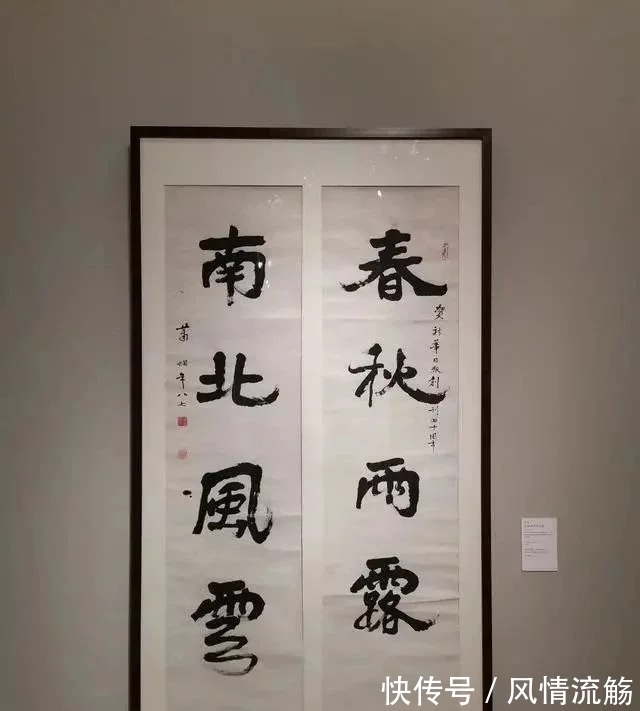 春秋雨露
賀新華日報創刊四十周年
南北風雲
蕭嫻年八七
快传号 / 风情流觞